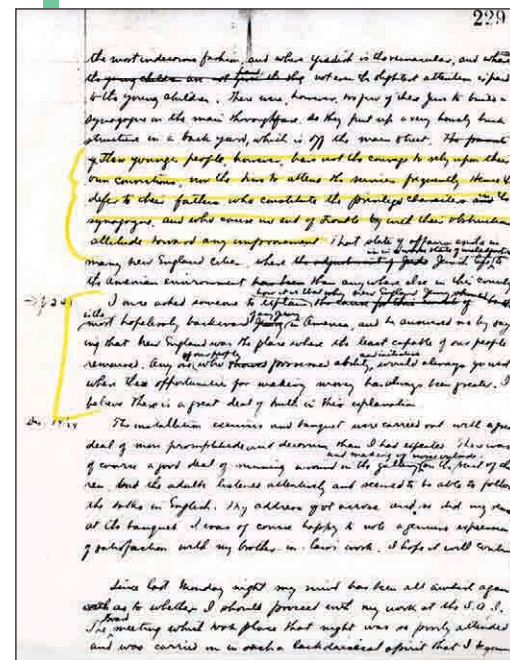 229
the most indecorous fashion, and where Yiddish is the vernacular, and where
the young children are not the slightest attention is paid
to the young children. There were, however, too few of these Jews to build a
synagogue in the main thoroughfare, so they put up a very homely brick
structure in a back yard, which is off the main street. The
These younger people, however, have not the courage to rely upon their
own convictions, nor the time to attend the services frequently. Hence they
defer to their fathers who constitute the privileged characters in the
synagogue, and who cause no end of trouble by their obstructive
attitude toward any improvement. That state of affairs exists in
many New England cities, where Jewish life
to the American environment than anywhere else in this country
I once asked someone to explain
how it is that New England
is the most hopelessly backward of any in America, and he answered me by say-
ing that New England was the place where the least capable of our people
remained. Any one of our people who possessed ability and initiative would always go west
where the opportunities for making money have always been greater. I
believe there is a great deal of truth in this explanation.
The installation exercises and banquet were carried out with a great
deal of more promptitude and decorum than I had expected. There was
of course a good deal of running around and making of noise in the gallery on the part of chil-
ren, but the adults listened attentively and seemed to be able to follow
the talks in English. My address got across and so did my
at the banquet. I was of course happy to note a genuine expression
of satisfaction with my brother-in-law's work. I hope it will continue
Since last Monday night my mind has been all again
as to whether I should proceed with my work at the S.A.J.
The Board meeting which took place that night was so poorly attended
and was carried on in such a lackadaisical spirit that I again